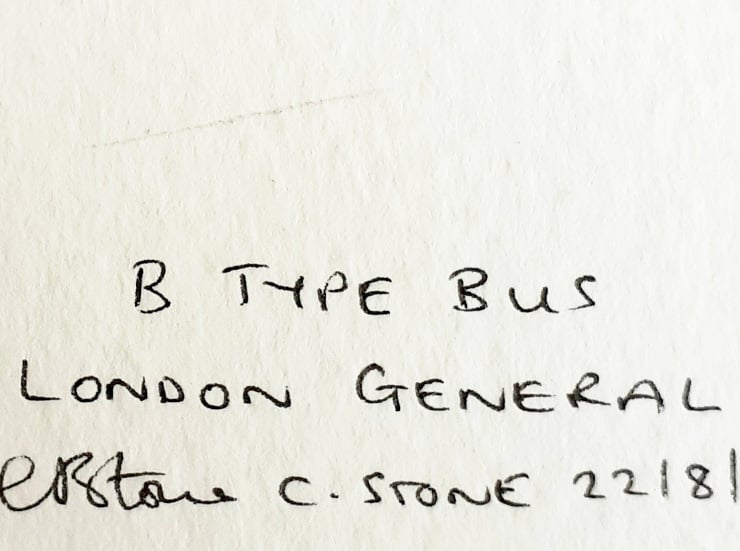 B TYPE BUS
LONDON GENERAL
CBStone C. STONE 22/8/